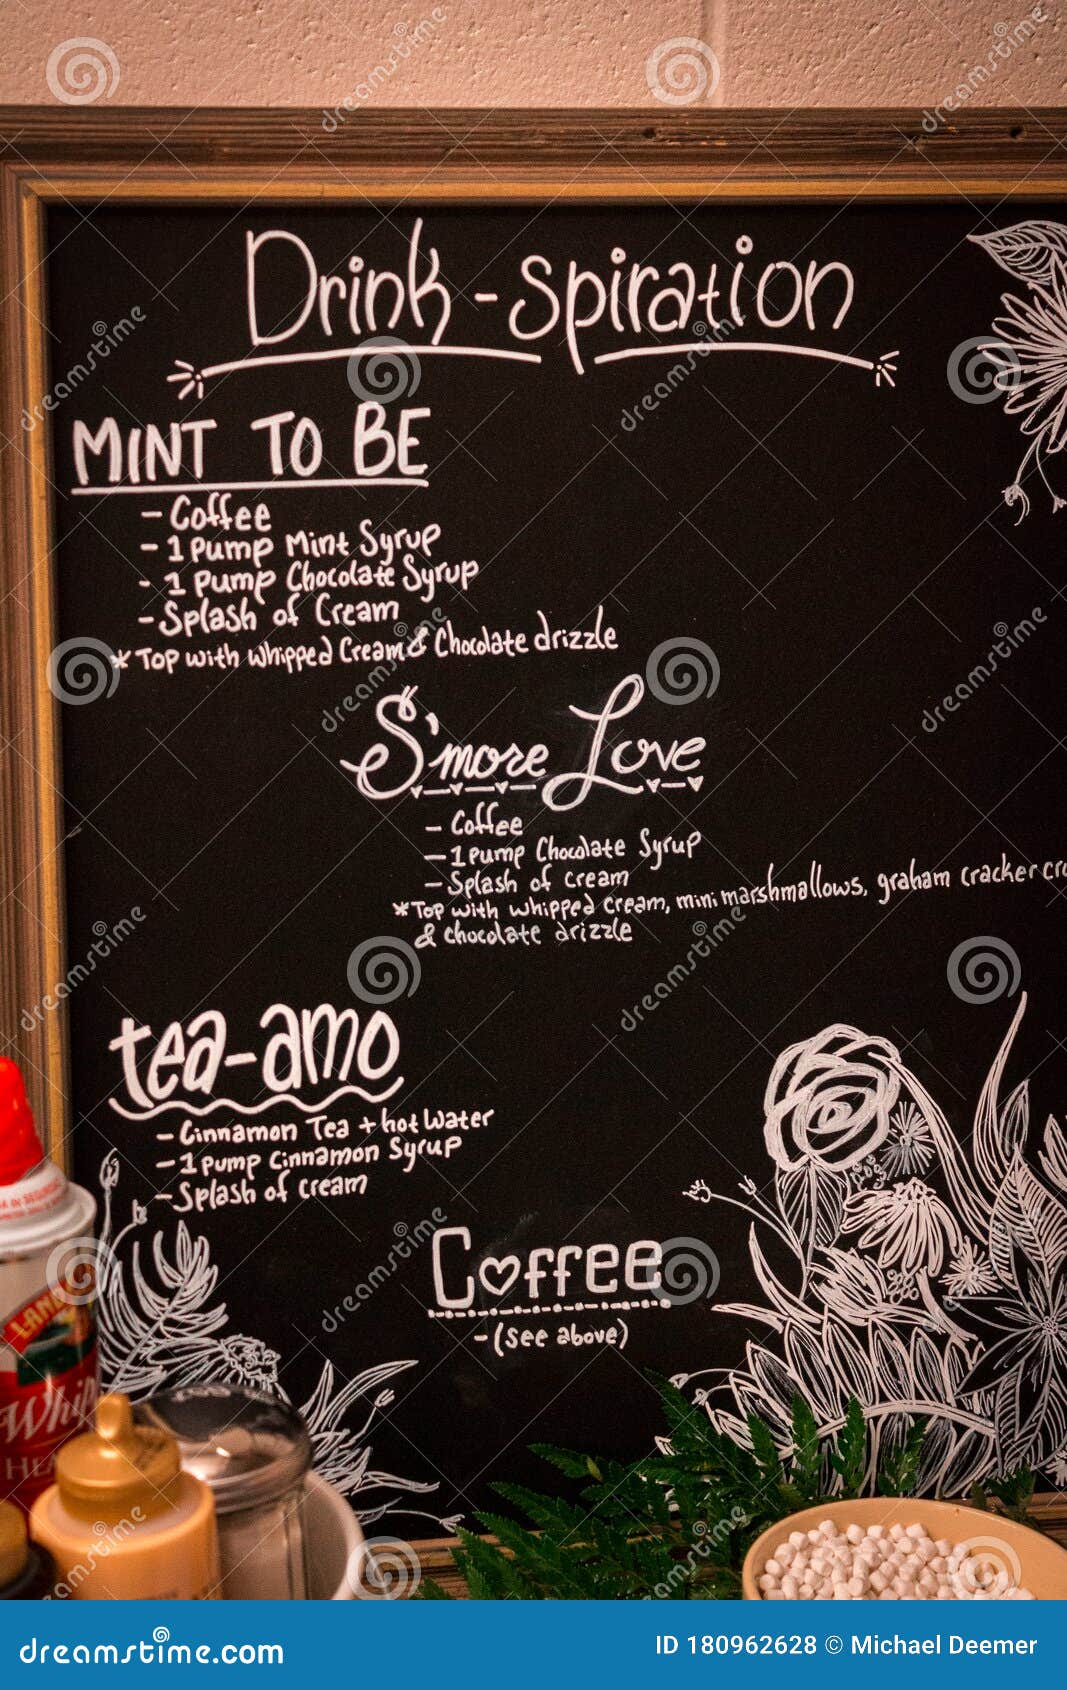 Drink-spiration
MINT TO BE
- Coffee
- 1 Pump Mint Syrup
- 1 Pump Chocolate Syrup
- Splash of Cream
* Top with whipped Cream & Chocolate drizzle
S'more Love
- Coffee
- 1 Pump Chocolate Syrup
- Splash of cream
* Top with whipped cream, mini marshmallows, graham cracker
& chocolate drizzle
tea-amo
- Cinnamon Tea + hot water
- 1 pump Cinnamon Syrup
- Splash of cream
Coffee
- (see above)
Whip
dreamstime.com
ID 180962628 © Michael Deemer